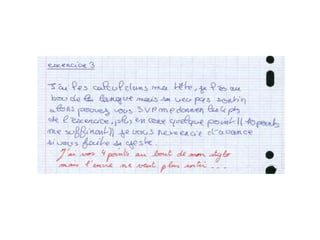 exercice 3
J'ai les calcul dans ma tête, je l'ai au
bou de la langue mais sa veu pas sortir
alors pouvez vous SVP me donner les pts
de l'exercice, plus encore quelque point !! 10 points
me suffiront !! je vous remercie d'avance
si vous faite se geste.
J'ai vos 4 points au bout de mon stylo
mais l'encre ne veut plus sortir...